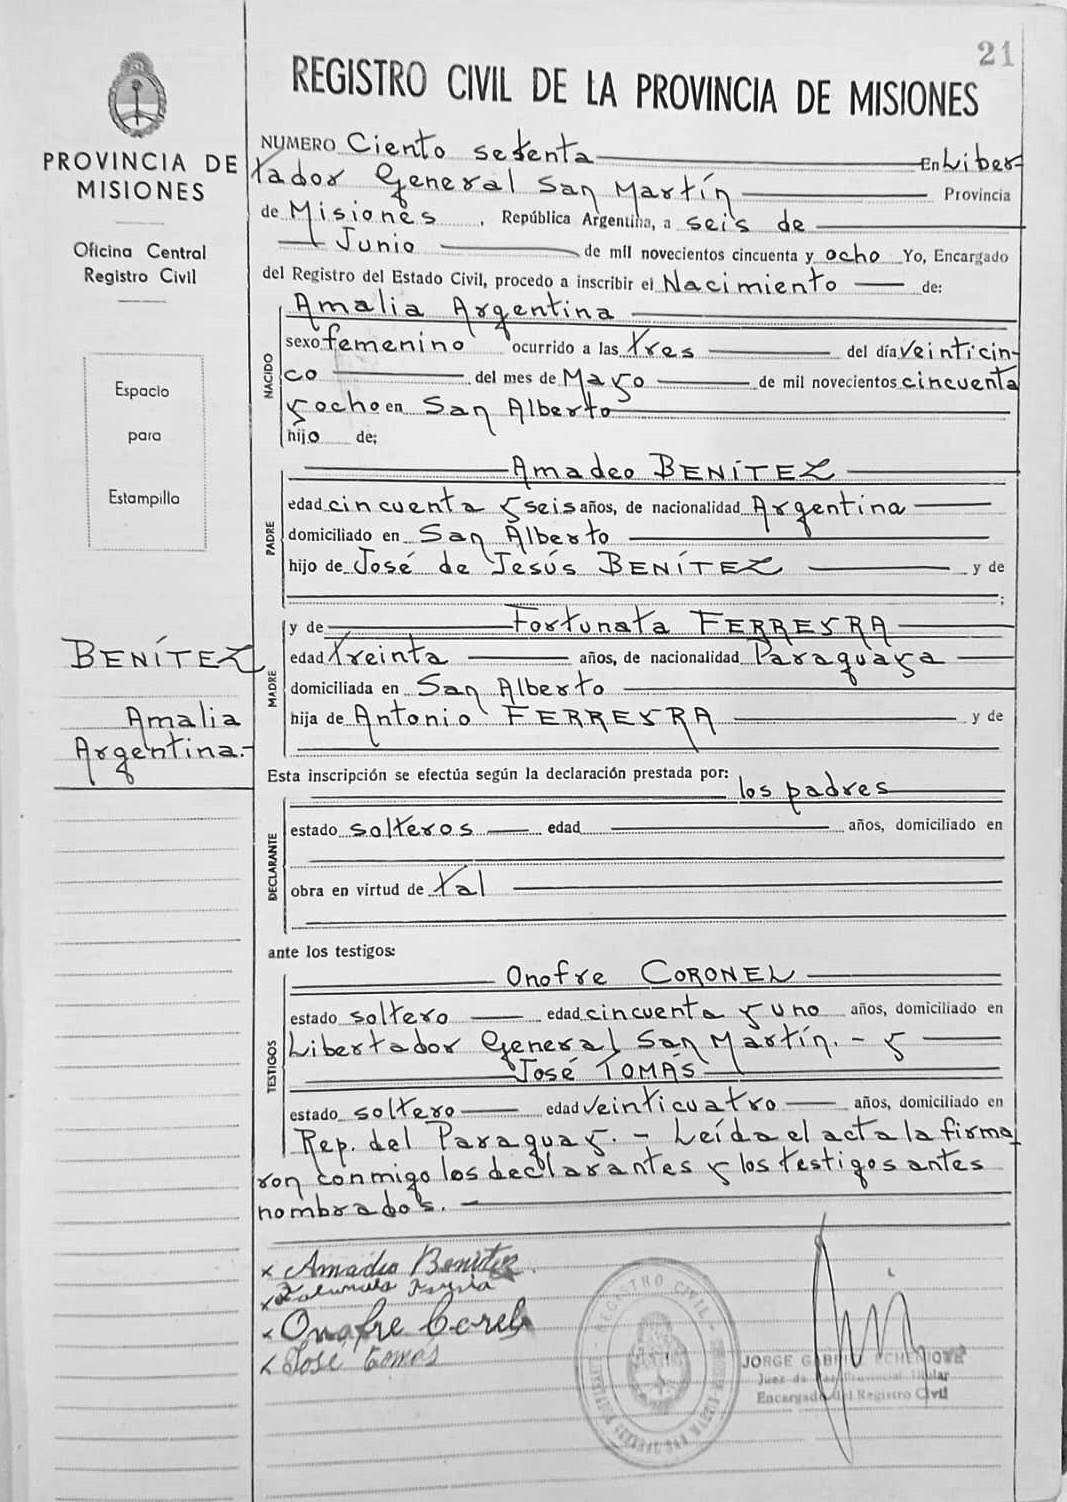 21
REGISTRO CIVIL DE LA PROVINCIA DE MISIONES
PROVINCIA DE
MISIONES
Oficina Central
Registro Civil
Espacio
para
Estampilla
BENÍTEZ
Amalia
Argentina.-
NUMERO Ciento setenta En Liber-
tador General San Martín Provincia
de Misiones, República Argentina, a seis de
Junio de mil novecientos cincuenta y ocho Yo, Encargado
del Registro del Estado Civil, procedo a inscribir el Nacimiento de:
NACIDO
Amalia Argentina
sexo femenino ocurrido a las tres del día veinticin-
co del mes de Mayo de mil novecientos cincuenta
y ocho en San Alberto
hijo de;
PADRE
Amadeo BENÍTEZ
edad cincuenta y seis años, de nacionalidad Argentina
domiciliado en San Alberto
hijo de José de Jesús BENÍTEZ y de
;
MADRE
y de Fortunata FERREYRA
edad treinta años, de nacionalidad Paraguaya
domiciliada en San Alberto
hija de Antonio FERREYRA y de
Esta inscripción se efectúa según la declaración prestada por:
los padres
DECLARANTE
estado solteros edad años, domiciliado en
obra en virtud de tal
ante los testigos:
TESTIGOS
Onofre CORONEL
estado soltero edad cincuenta y uno años, domiciliado en
Libertador General San Martín.- y
José TOMÁS
estado soltero edad veinticuatro años, domiciliado en
Rep. del Paraguay.- Leída el acta la firma
ron conmigo los declarantes y los testigos antes
nombrados.-
x Amadeo Benitez
x
x Onofre Coronel
x José Tomas
REGISTRO CIVIL
LIBERTADOR GENERAL SAN MARTIN
JORGE
Juez de Paz Provincial Titular
Encargado del Registro Civil